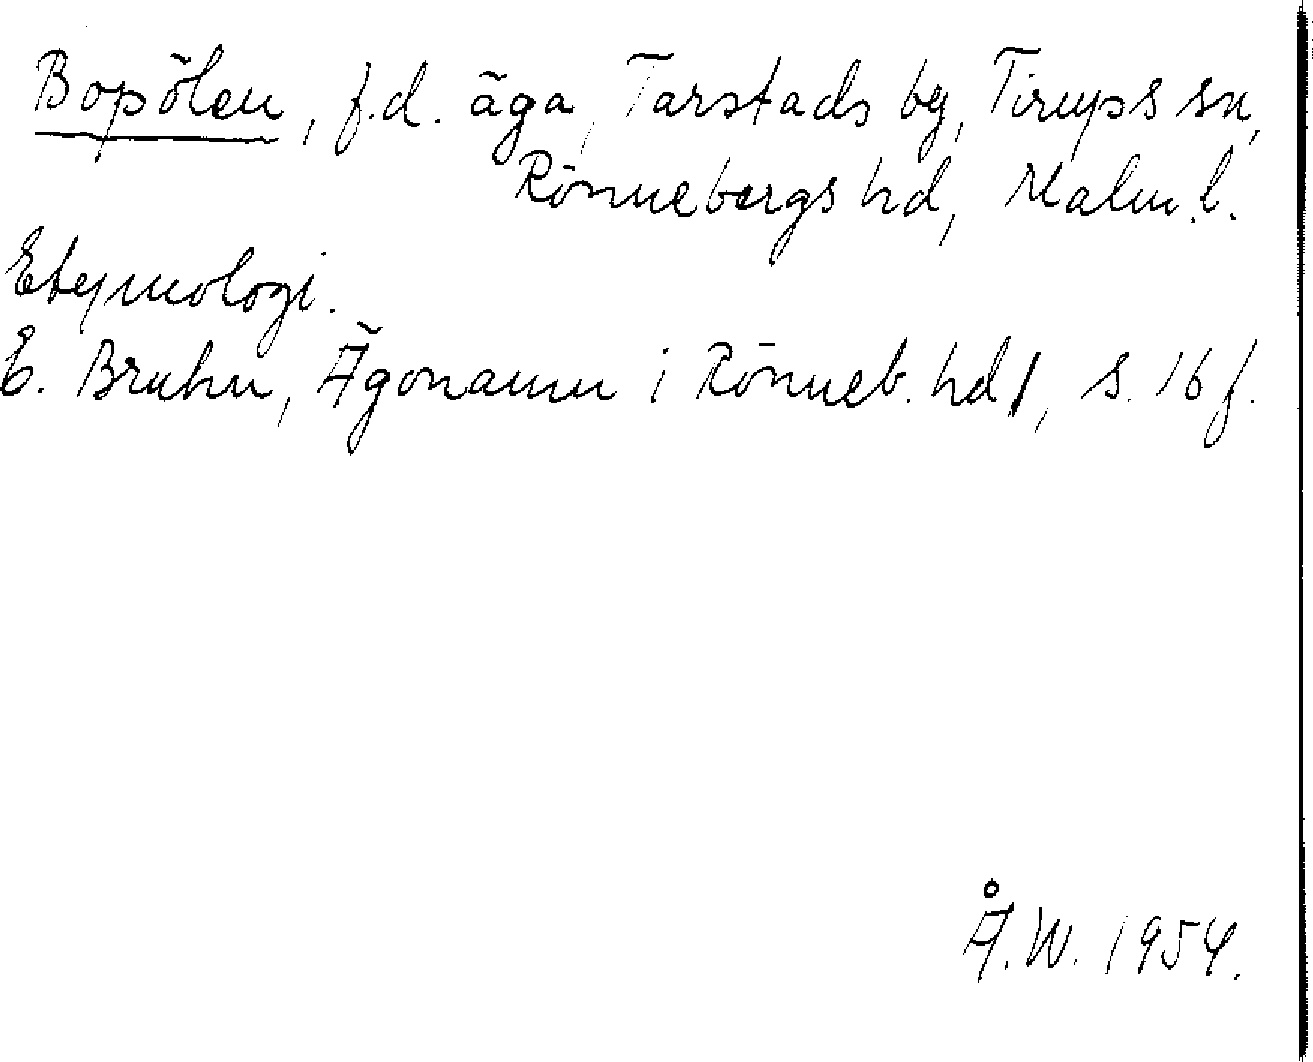 Bopölen, f.d. äga, Tarstads by, Tirups sn,
Rönnebergs hd, Malm.l.
Etymologi.
E. Bruhn, Ägonamn i Rönneb. hd 1, s. 16 f.
Å.W. 1954.